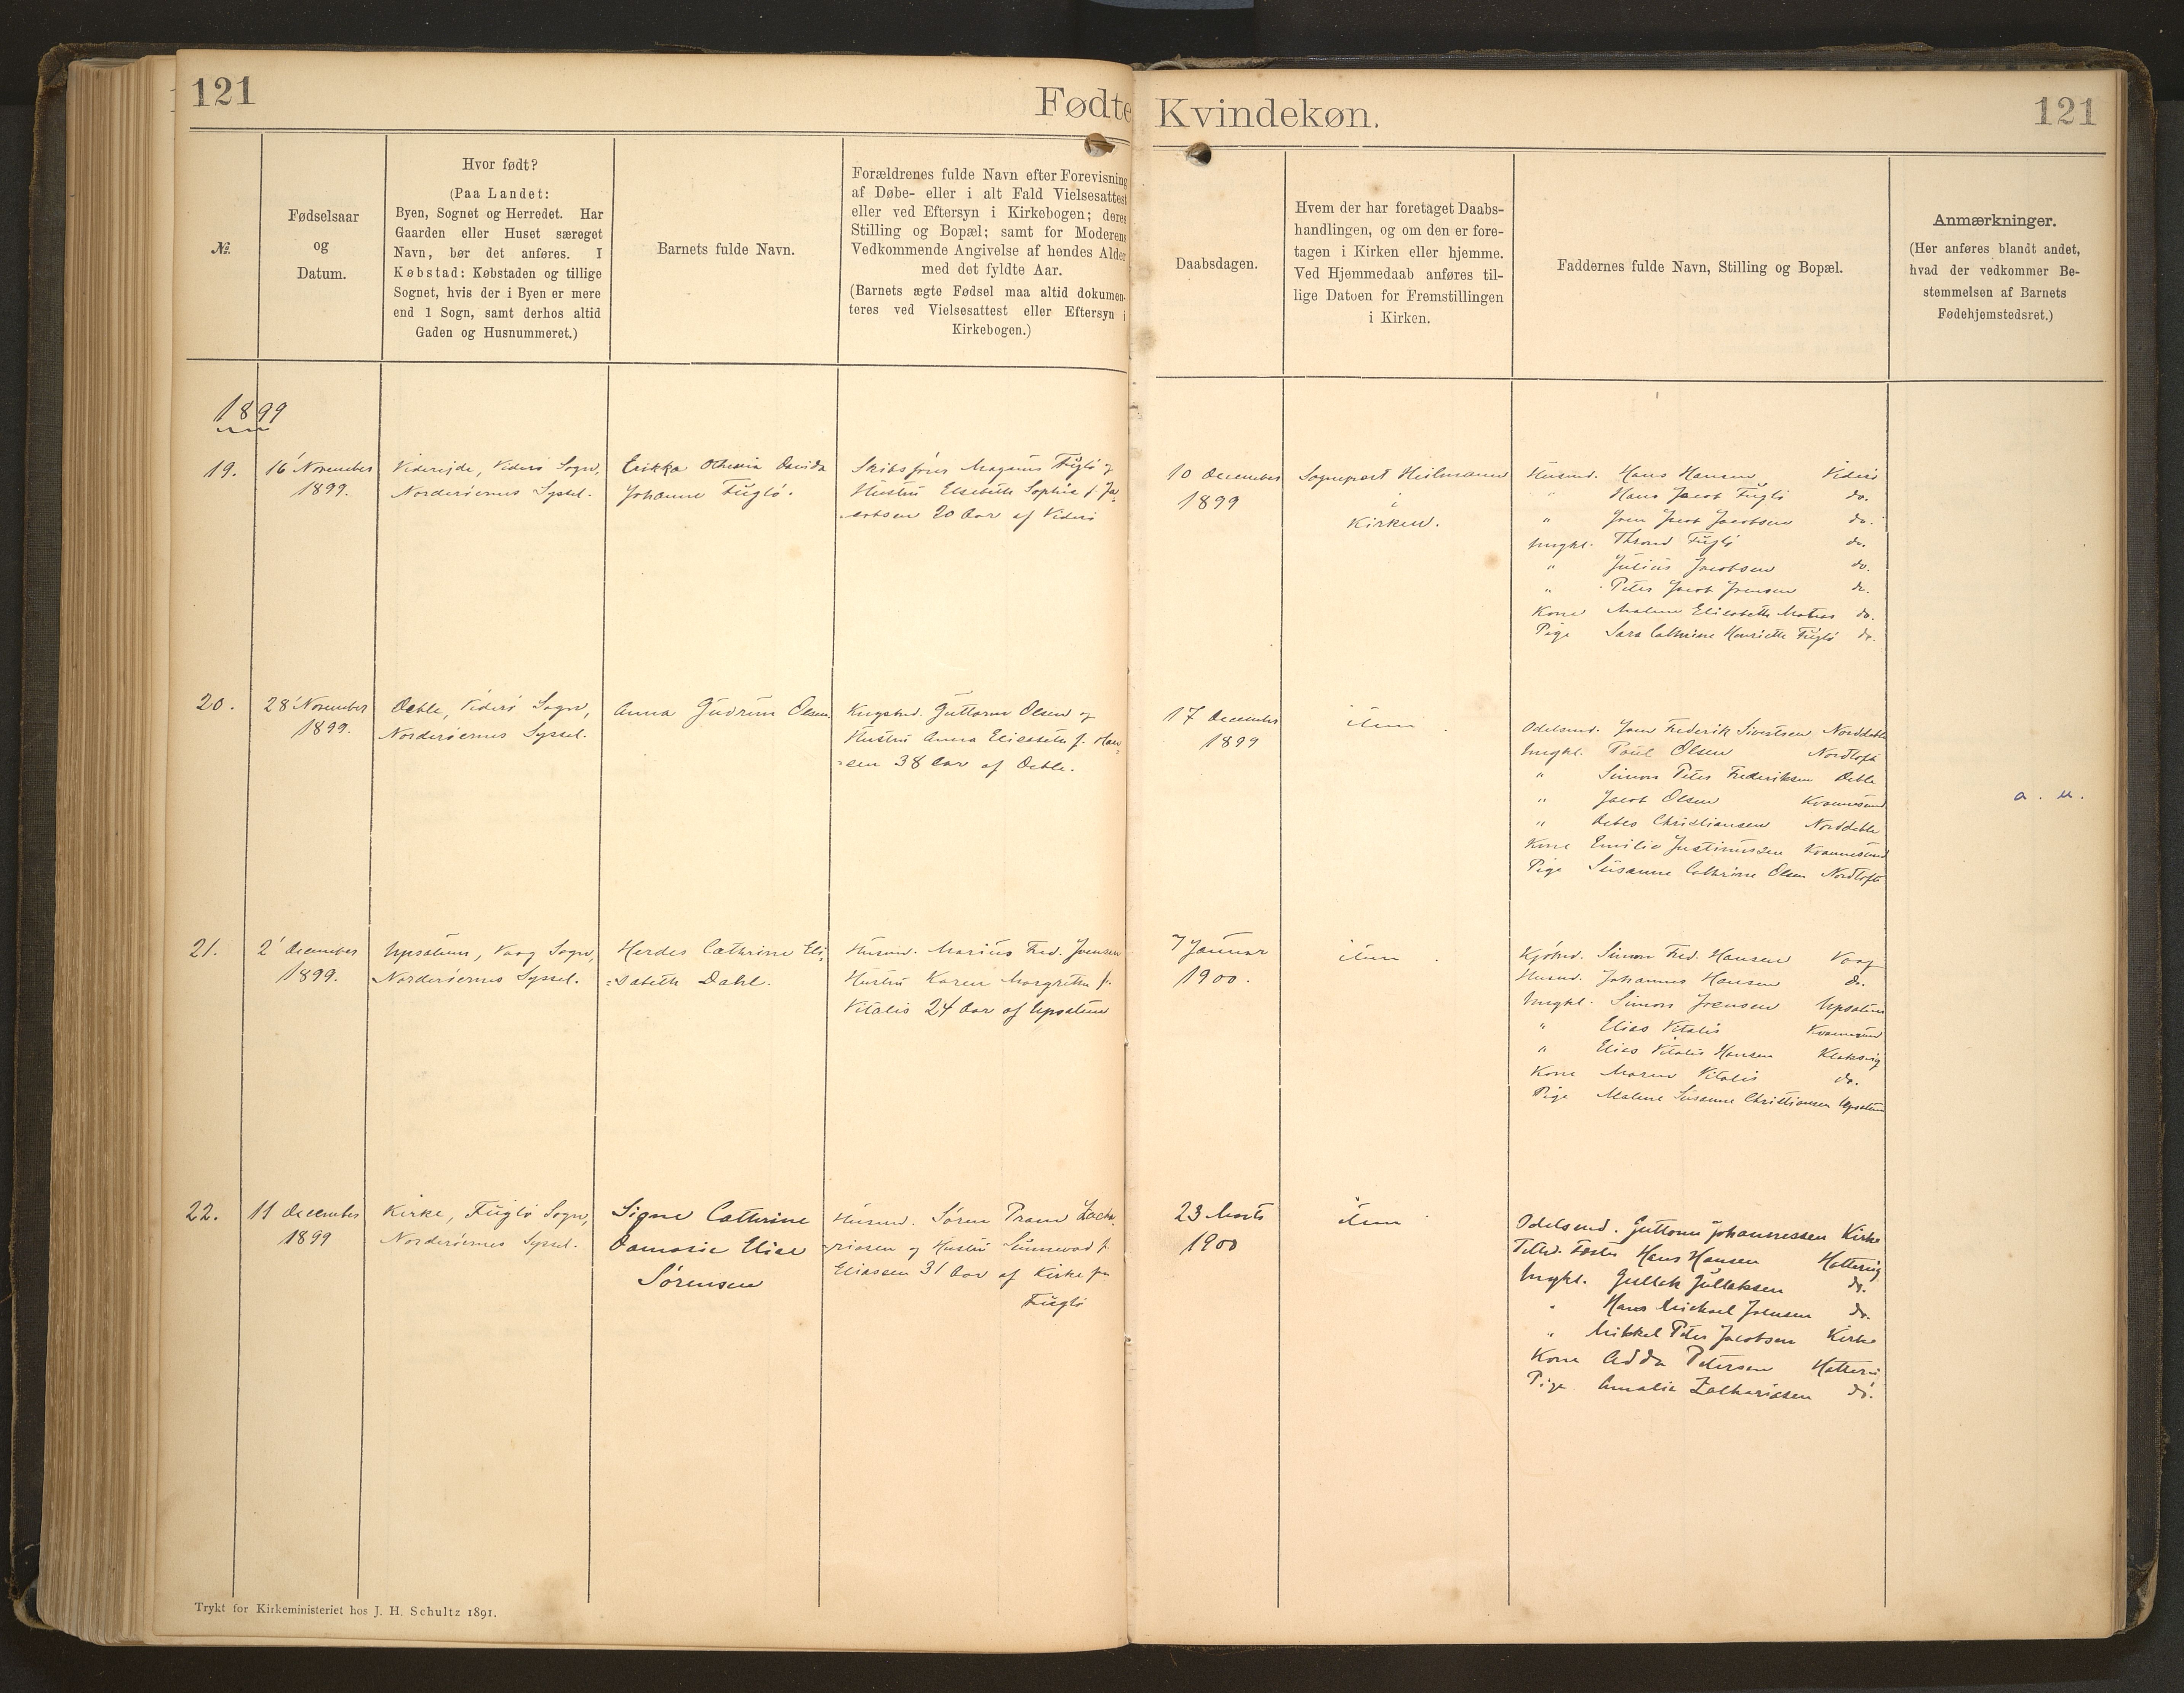 121
Fødte
Kvindekøn.
121
№.
Fødselsaar
og
Datum.
Hvor født?
(Paa Landet:
Byen, Sognet og Herredet. Har
Gaarden eller Huset særeget
Navn, bør det anføres. I
Købstad: Købstaden og tillige
Sognet, hvis der i Byen er mere
end 1 Sogn, samt derhos altid
Gaden og Husnummeret.)
Barnets fulde Navn.
Forældrenes fulde Navn efter Forevisning
af Døbe- eller i alt Fald Vielsesattest
eller ved Eftersyn i Kirkebogen; deres
Stilling og Bopæl; samt for Moderens
Vedkommende Angivelse af hendes Alder
med det fyldte Aar.
(Barnets ægte Fødsel maa altid dokumen-
teres ved Vielsesattest eller Eftersyn i
Kirkebogen.)
Daabsdagen.
Hvem der har foretaget Daabs-
handlingen, og om den er fore-
tagen i Kirken eller hjemme.
Ved Hjemmedaab anføres til-
lige Datoen for Fremstillingen
i Kirken.
Faddernes fulde Navn, Stilling og Bopæl.
Anmærkninger.
(Her anføres blandt andet,
hvad der vedkommer Be-
stemmelsen af Barnets
Fødehjemstedsret.)
1899
19.
16' November
1899.
Videreide, Viderø Sogn,
Norderøernes Syssel.
Erikka Othenia Davida
Johanne Fuglø.
Skibsfører Magnus Fuglø og
Hustru Elsebeth Sophie f. Ja-
cobsen 20 Aar af Viderø
10 December
1899
Sognepræst Heilmann
i
Kirken.
Husmd. Hans Hansen Viderø
" Hans Jacob Fuglø do.
" Joen Jacob Jacobsen do.
Ungkl. Thrond Fuglø do.
" Julius Jacobsen do.
" Peter Jacob Joensen do.
Kone Malene Elisabeth do.
Pige Sara Cathrine Henriette Fuglø do.
20.
28' November
1899.
Deble, Viderø Sogn,
Norderøernes Syssel.
Anna Gudrun Olsen
Kngsbd. Guttorm Olsen og
Hustru Anna Elisabeth f. Han-
=sen 38 Aar af Deble.
17 December
1899
item
Odelsmd. Joen Frederik Sivertsen Norddeble
Ungkl. Poul Olsen Nordtofte
" Simon Peter Frederiksen Deble
" Jacob Olsen Kvannesund
" Debes Christiansen Norddeble
Kone Emilie Justinussen Kvannesund
Pige Susanne Cathrine Olsen Nordtofte
a. u.
21.
2' December
1899.
Upsalum, Vaag Sogn,
Norderøernes Syssel.
Herdes Cathrine Eli-
=sabeth Dahl.
Husmd. Marius Fred. Joensen
Hustru Karen Margrethe f.
Vitalis 24 Aar af Upsalum
7 Januar
1900.
item
Kjøbmd. Simon Fred. Hansen Vaag
Husmd. Johannes Hansen do.
Ungkl. Simon Joensen Upsalum
" Elias Vitalis Kvannesund
" Elias Vitalis Hansen Klaksvig
Kone Maren Vitalis do.
Pige Malene Susanne Christiansen Upsalum
22.
11 December
1899
Kirke, Fuglø Sogn,
Norderøernes Syssel.
Signe Cathrine
Damasie Elise
Sørensen
Husmd. Søren Pram Zacha-
riasen og Hustru Sunnevod f.
Eliassen 31 Aar af Kirke paa
Fuglø
23 Marts
1900
item
Odelsmd. Guttorm Johannessen Kirke
Fæster Hans Hansen Hattervig
Ungkl. Gullak Gullaksen do.
" Hans Michael Joensen do.
" Mikkel Peter Jacobsen Kirke
Kone Adda Petersen Hattervig
Pige Amalie Zachariasen do.
Trykt for Kirkeministeriet hos J. H. Schultz 1891.